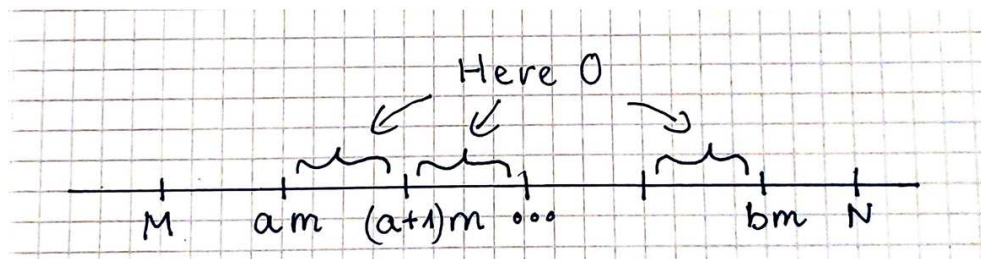 Here 0
M am (a+1)m ... bm N